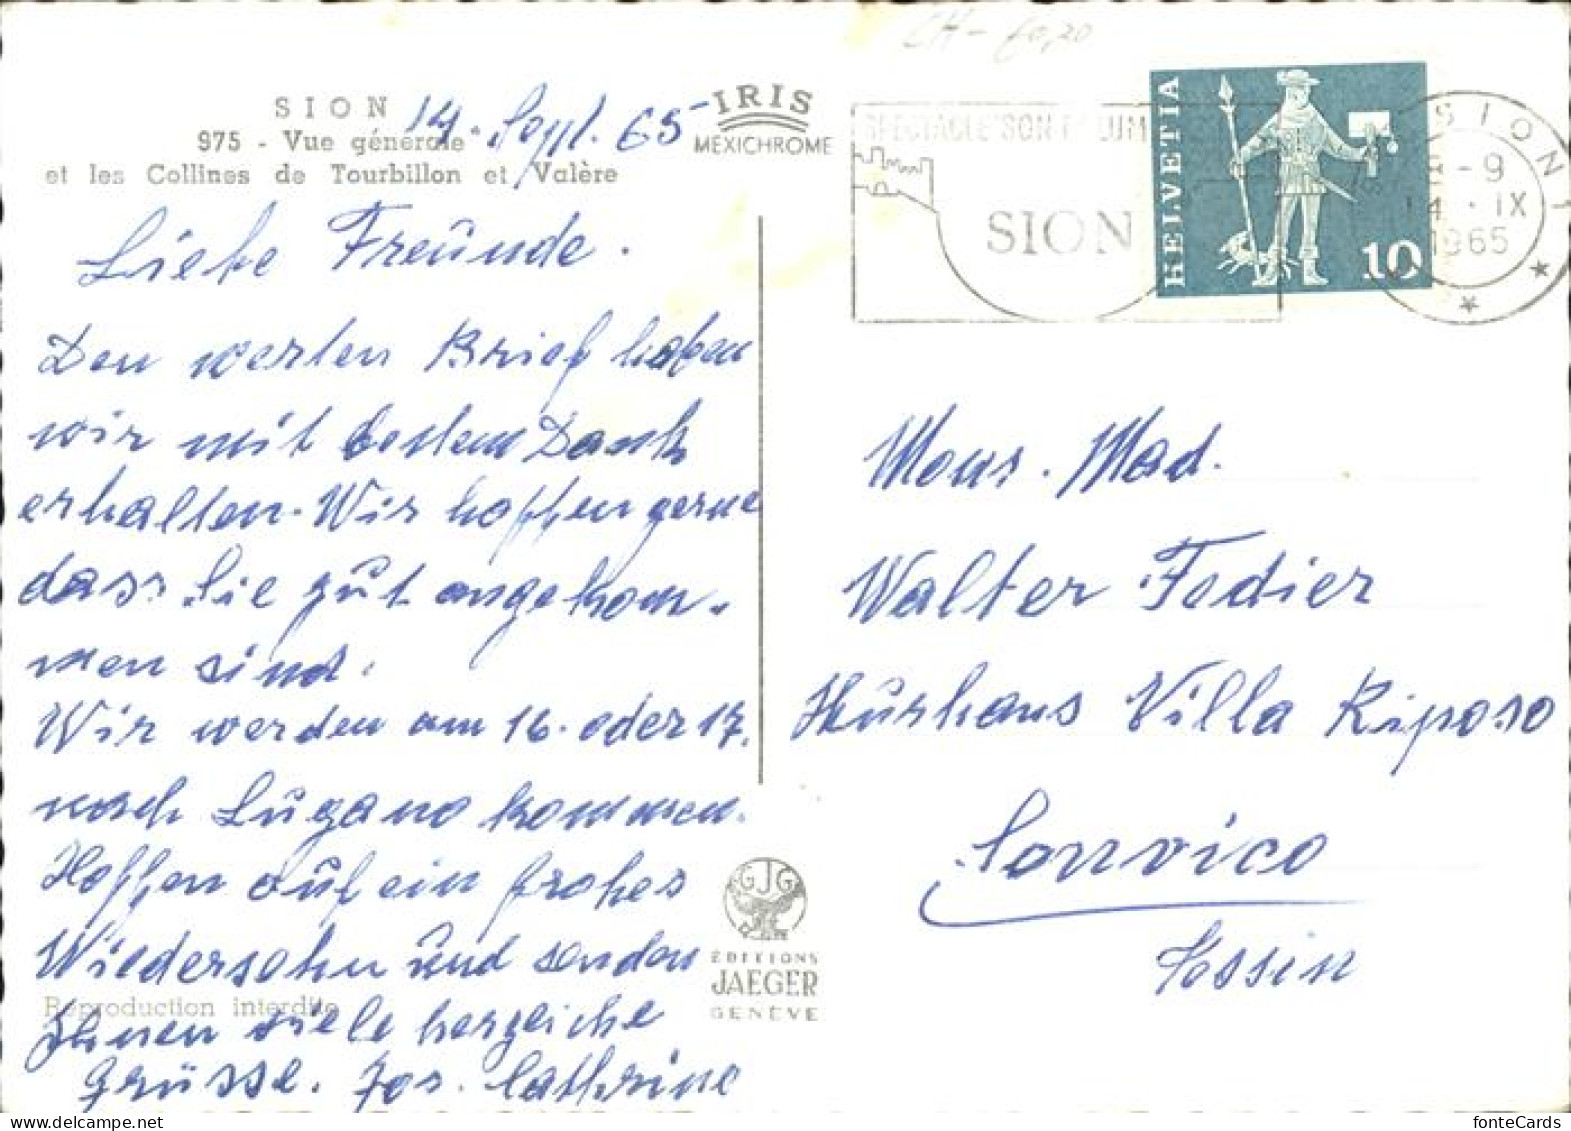 SION
975 - Vue générale
et les Collines de Tourbillon et Valère
14. Sept. 65
IRIS
MEXICHROME
Liebe Freunde.
Den werten Brief haben
wir mit bestem Dank
erhalten. Wir hoffen gerne
dass Sie gut angekom-
men sind.
Wir werden am 16. oder 17.
nach Lugano kommen.
Hoffen auf ein frohes
Wiedersehn und senden
Ihnen viele herzliche
Grüsse. Jos. Cathrine
Reproduction interdite
GJG
ÉDITIONS
JAEGER
GENÈVE
CH-
SPECTACLE SON LUM
SION
HELVETIA
10
SION 1
8-9
14.IX
1965
Mons. Mad.
Walter Fedier
Kurhaus Villa Riposo
Sonvico
Tessin
fonteCards